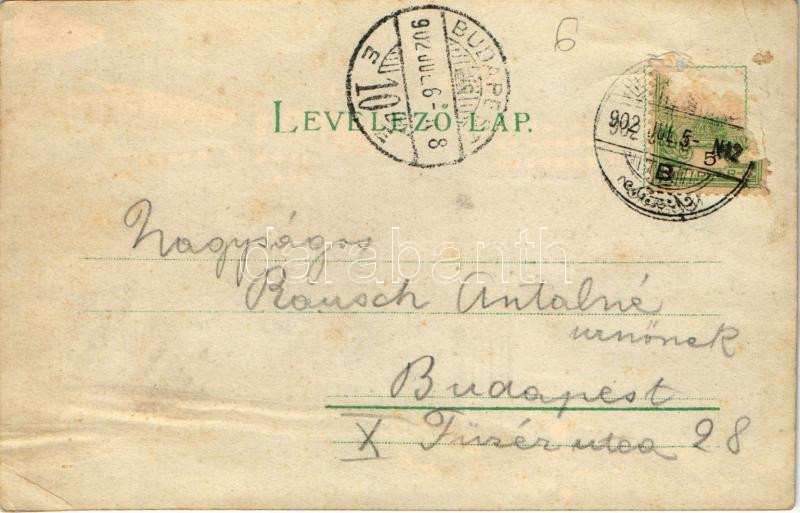 6
LEVELEZŐ-LAP.
BUDAPEST
902 JUL 6
902 JUL 5 N12
5
B
darabanth
Nagyságos
Rausch Antalné
urnőnek
Budapest
X Füzér utca 28